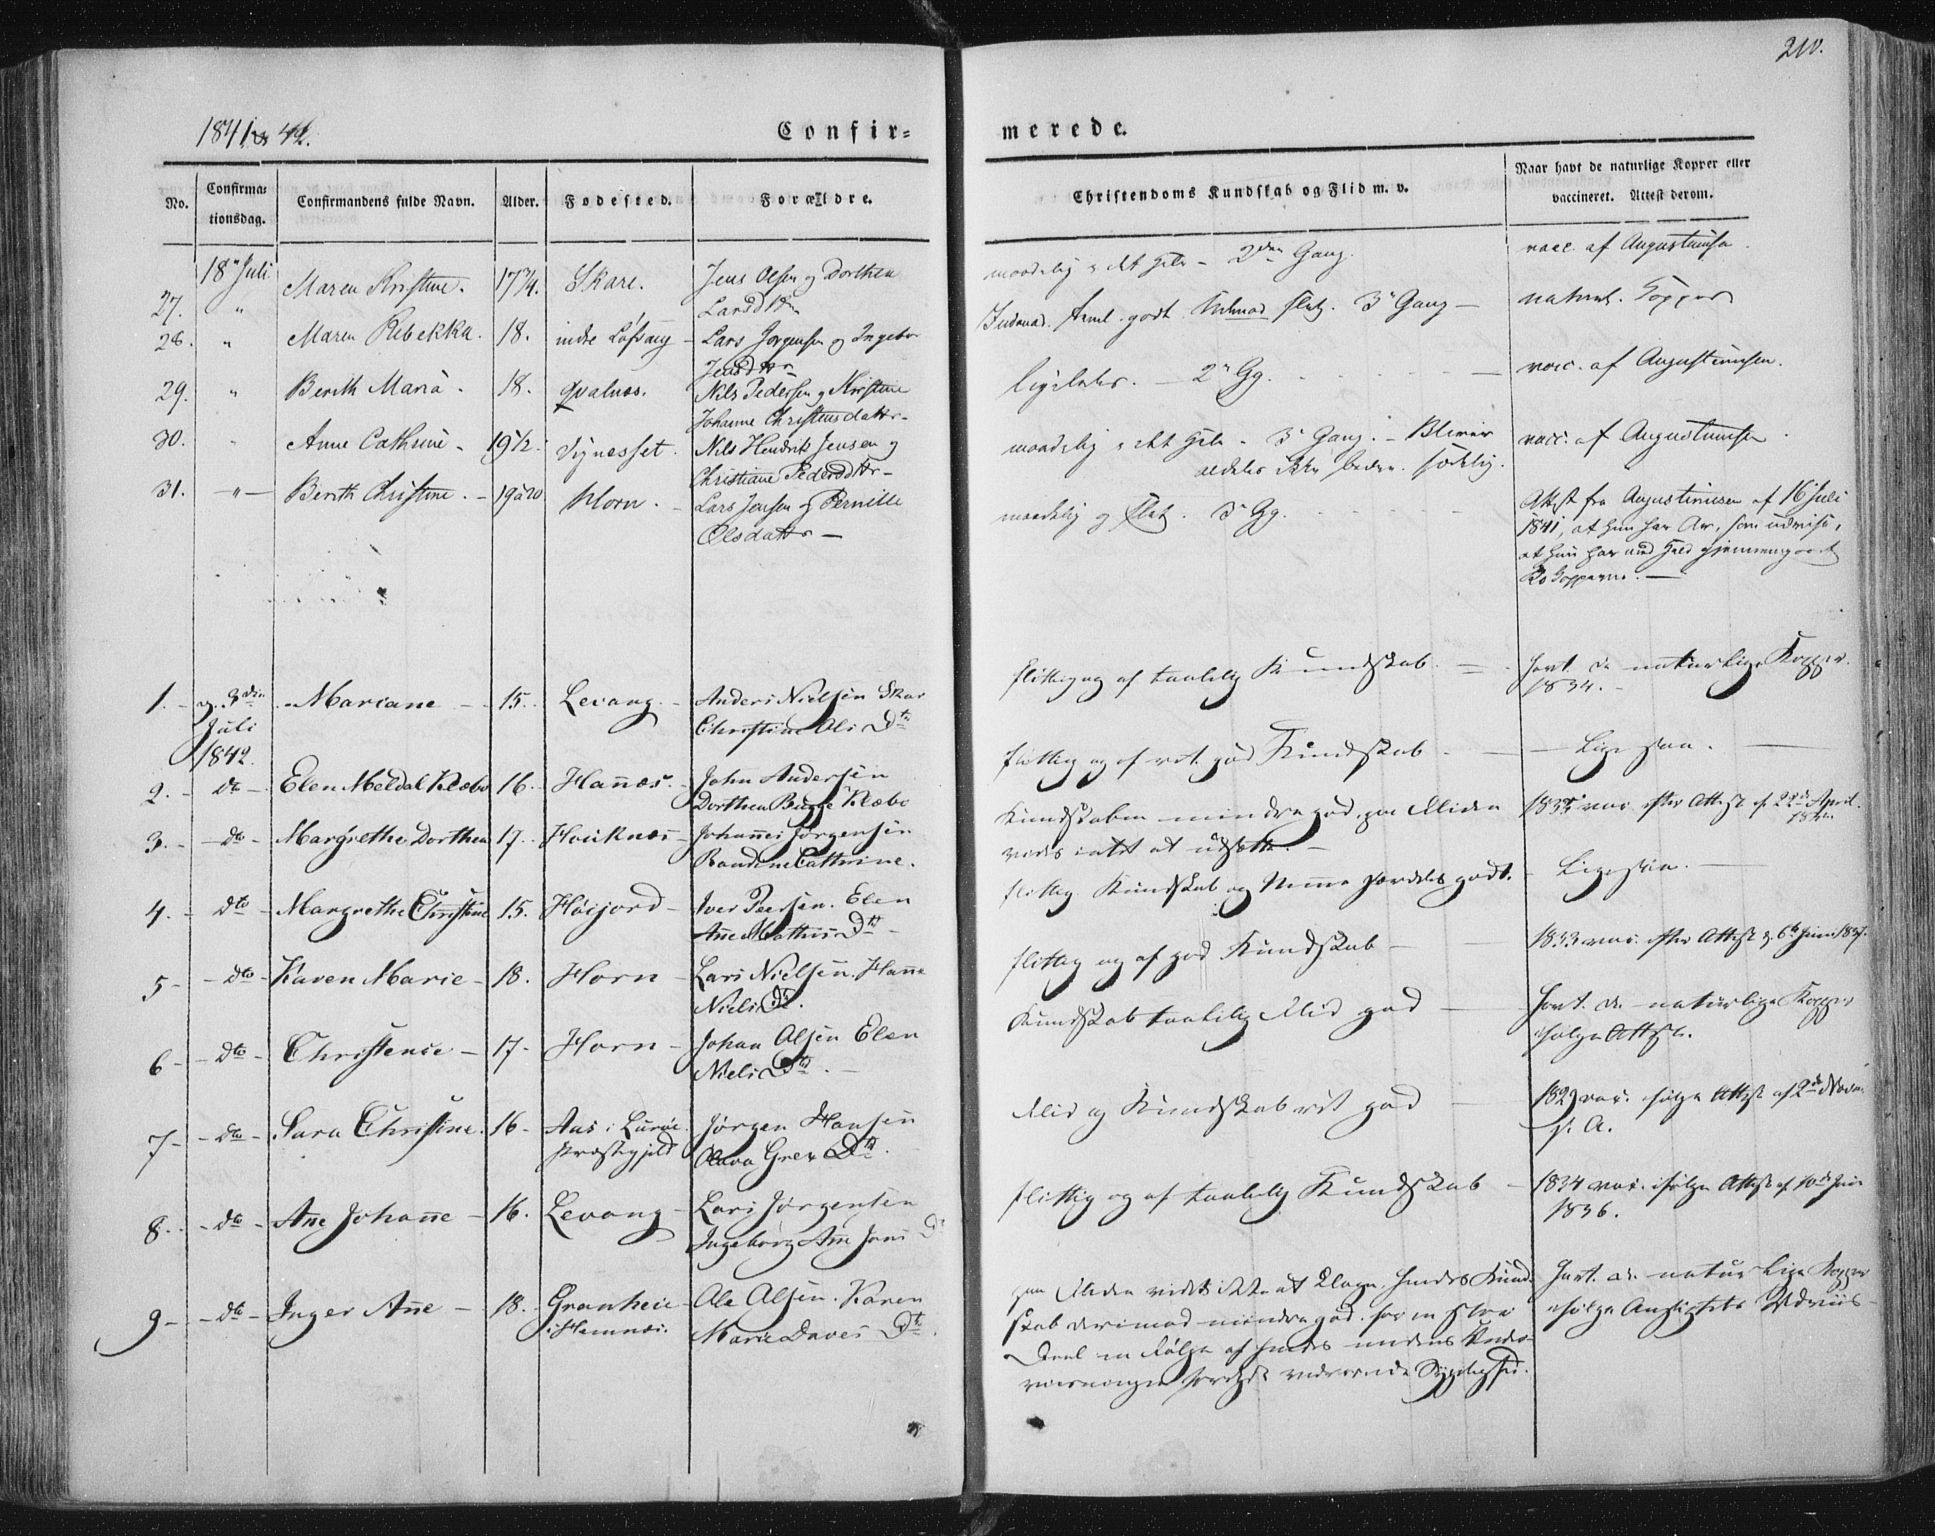 210.
1841 & 42.
Confir=
merede.
No.
Confirma=
tionsdag.
Confirmandens fulde Navn.
Alder.
Fødested.
Forældre.
Christendoms Kundskab og Flid m. v.
Naar havt de naturlige Kopper eller
vaccineret. Attest derom.
27. 18" Juli Maren Kristine. 17 3/4. Skare. Jens Olsen og Dorthea
Larsdttr
maadelig 2den Gang.
vacc. af Augustinusen
28. " Maren Rebekka. 18. indre Lefvang - Lars Jørgensen og Ingebor
Jensdttr
godt. 3" Gang -
naturl. Kopper
29. " Berith Maria. 18. Qvalnæs. Nils Pedersen og Kristine
Johanne Christensdattr -
ligeledes. - 2" Gg.
vacc. af Augustinusen.
30. " Anne Cathrine - 19 1/2. Nils Hendrik Jensen og
Christiane Pedersdttr -
maadelig 3" Gang. - Bliver
aldeles ikke bedre.
vacc. af Augustinusen
31. - " - Berith Christine. - 19 à 20 Horn. - Lars Jensen og Pernille
Olsdattr -
maadelig og 3" Gg.
Attest fra Augustinusen af 16 Juli
1841, at hun har Ar, som udvise,
at hun har med Held gjennemgaaet
Kokopperne. -
1. - d. 3die
Juli
1842. Mariane - 15. Levang. - Anders Nielsen Skar
Christine Ols Dtr
flittig og af taalelig Kundskab. -
havt de naturlige Kopper.
1834. -
2. - do - Elen Meldal Klæbo 16. Hannæs. - John Andersen
Dorthea Bugge Klæbo
flittig og af ret god Kundskab -
- Ligesaa. -
3. - - do - Margrethe Dorthea 17. Høiknæs - Johannes Jørgensen
Randine Cathrine.
Kundskaben mindre god, paa Fliden
vides intet at udsætte. -
vac. efter Attest af 22de April
4. - dto - Margrethe Christine 15. Høijord - Iver Peersen. Elen
Ane Mathis Dtr -
flittig. Kundskab og Nemme særdeles godt. -
Ligesaa. -
5 - - dto - Karen Marie - 18. Horn - Lars Nielsen. Hanna
Niels Dtr.
flittig og af god Kundskab -
1833 vac. efter Attest d. 6te Juni 1837.
6 - - dto - Christense - 17 - Horn - Johan Olsen Elen
Niels Dtr. -
Kundskab taalelig Flid god -
havt de naturlige Kopper
ifølge Attest.
7 - - dto - Sara Christine. 16 - Aas i Lurøe
Præstegjeld Jørgen Hansen
Olava Grex Dtr.
Flid og Kundskab ret god -
1829 vac. ifølge Attest af 2den Novem
s. A.
8. - - dto - Ane Johanne - 16. Levang - Lars Jørgensen
Ingeborg Ane Jens Dr
flittig og af taalelig Kundskab -
1834 vac. ifølge Attest af 10de Juni
1836.
9 - - dto - Inger Ane - 18. - Granheie
i Hemnæs. Ole Olsen. Karen
Marie Daves Dtr.
paa Fliden vides ikke at klage, hendes Kund
skab derimod mindre god, for en stor
Deel en Følge af hendes under
værende Sygelighed.
havt de naturlige Kopper
ifølge Ansigtets Udviis